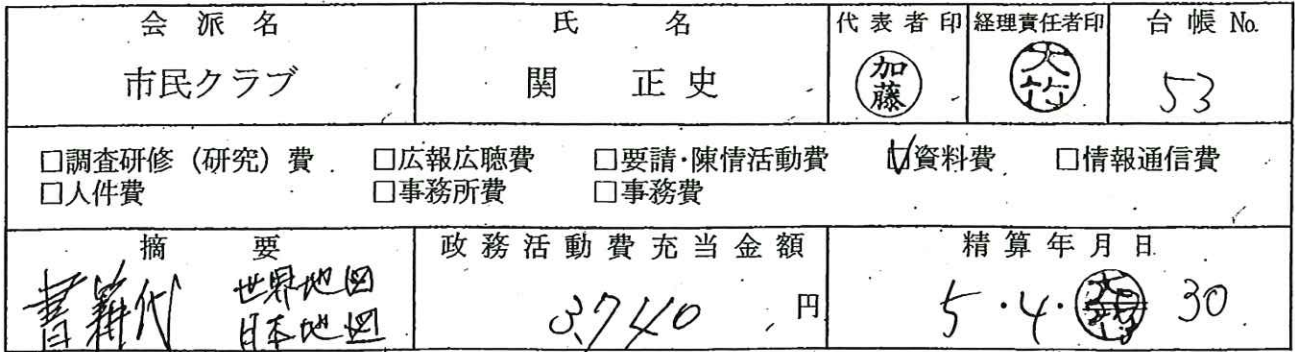 会派名 氏名 代表者印 経理責任者印 台帳 No.
市民クラブ 関 正史 加藤 大竹 53
□調査研修（研究）費 □広報広聴費 □要請・陳情活動費 ☑資料費 □情報通信費
□人件費 □事務所費 □事務費
摘要 政務活動費充当金額 精算年月日
書籍代 世界地図 3,740 円 5・4・ 30
日本地図